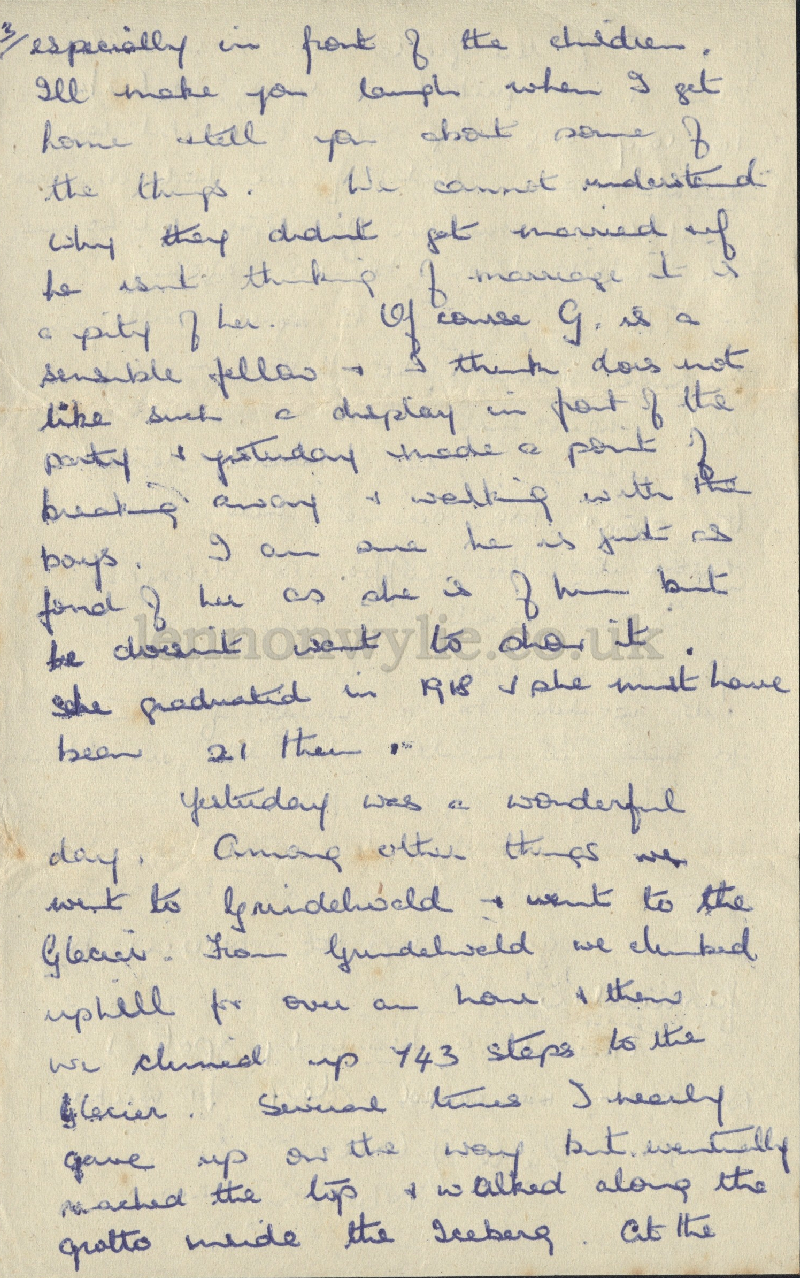 3/ especially in front of the children.
I'll make you laugh when I get
home & tell you about some of
the things. We cannot understand
why they didn't get married & if
he isn't thinking of marriage it is
a pity of her. Of course G. is a
sensible fellow & I think does not
like such a display in front of the
party & yesterday made a point of
breaking away & walking with the
boys. I am sure he is just as
fond of her as she is of him but
he doesn't want to show it.
She graduated in 1918 & she must have
been 21 then.
Yesterday was a wonderful
day. Among other things we
went to Grindelwald & went to the
Glacier. From Grindelwald we climbed
uphill for over an hour & then
we climed up 743 steps to the
Glacier. Several times I nearly
gave up on the way but eventually
reached the top & walked along the
grotto inside the Iceberg. At the
lennonwylie.co.uk